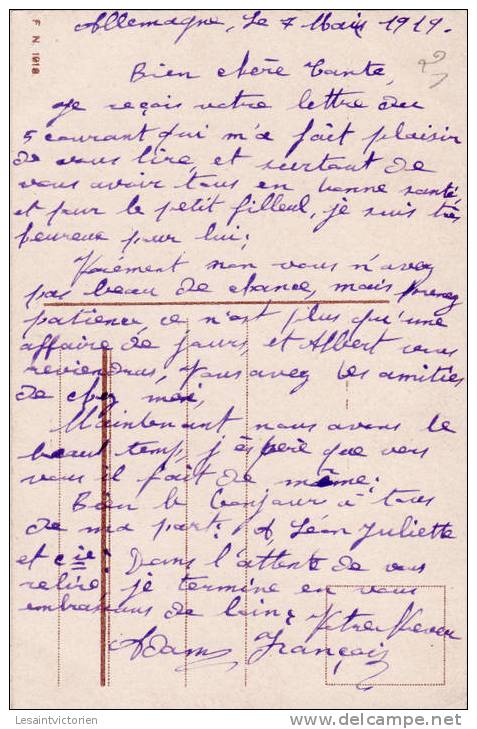 F. N. 1918
Allemagne, Le 7 Mais 1919.
Bien chère Tante,
Je reçois votre lettre du
5 courant qui m'a fait plaisir
de vous lire, et surtout de
vous avoir tous en bonne santé,
et pour le petit filleul, je suis très
heureux pour lui;
Vraiment non vous n'avez
pas beau de chance, mais prenez
patience, ce n'est plus qu'une
affaire de jours, et Albert vous
reviendras, Vous avez les amitiés
de chez moi,
Maintenant nous avons le
beau temp, j'éspère que vers
vous il fait de même;
Bien le bonjour à tous
de ma part; A, Léon Juliette
et cie; Dans l'attente de vous
relire, je termine en vous
embrassans de loin;
Votre Neveu
Adam François
Lesaintvictorien
delcampe.net